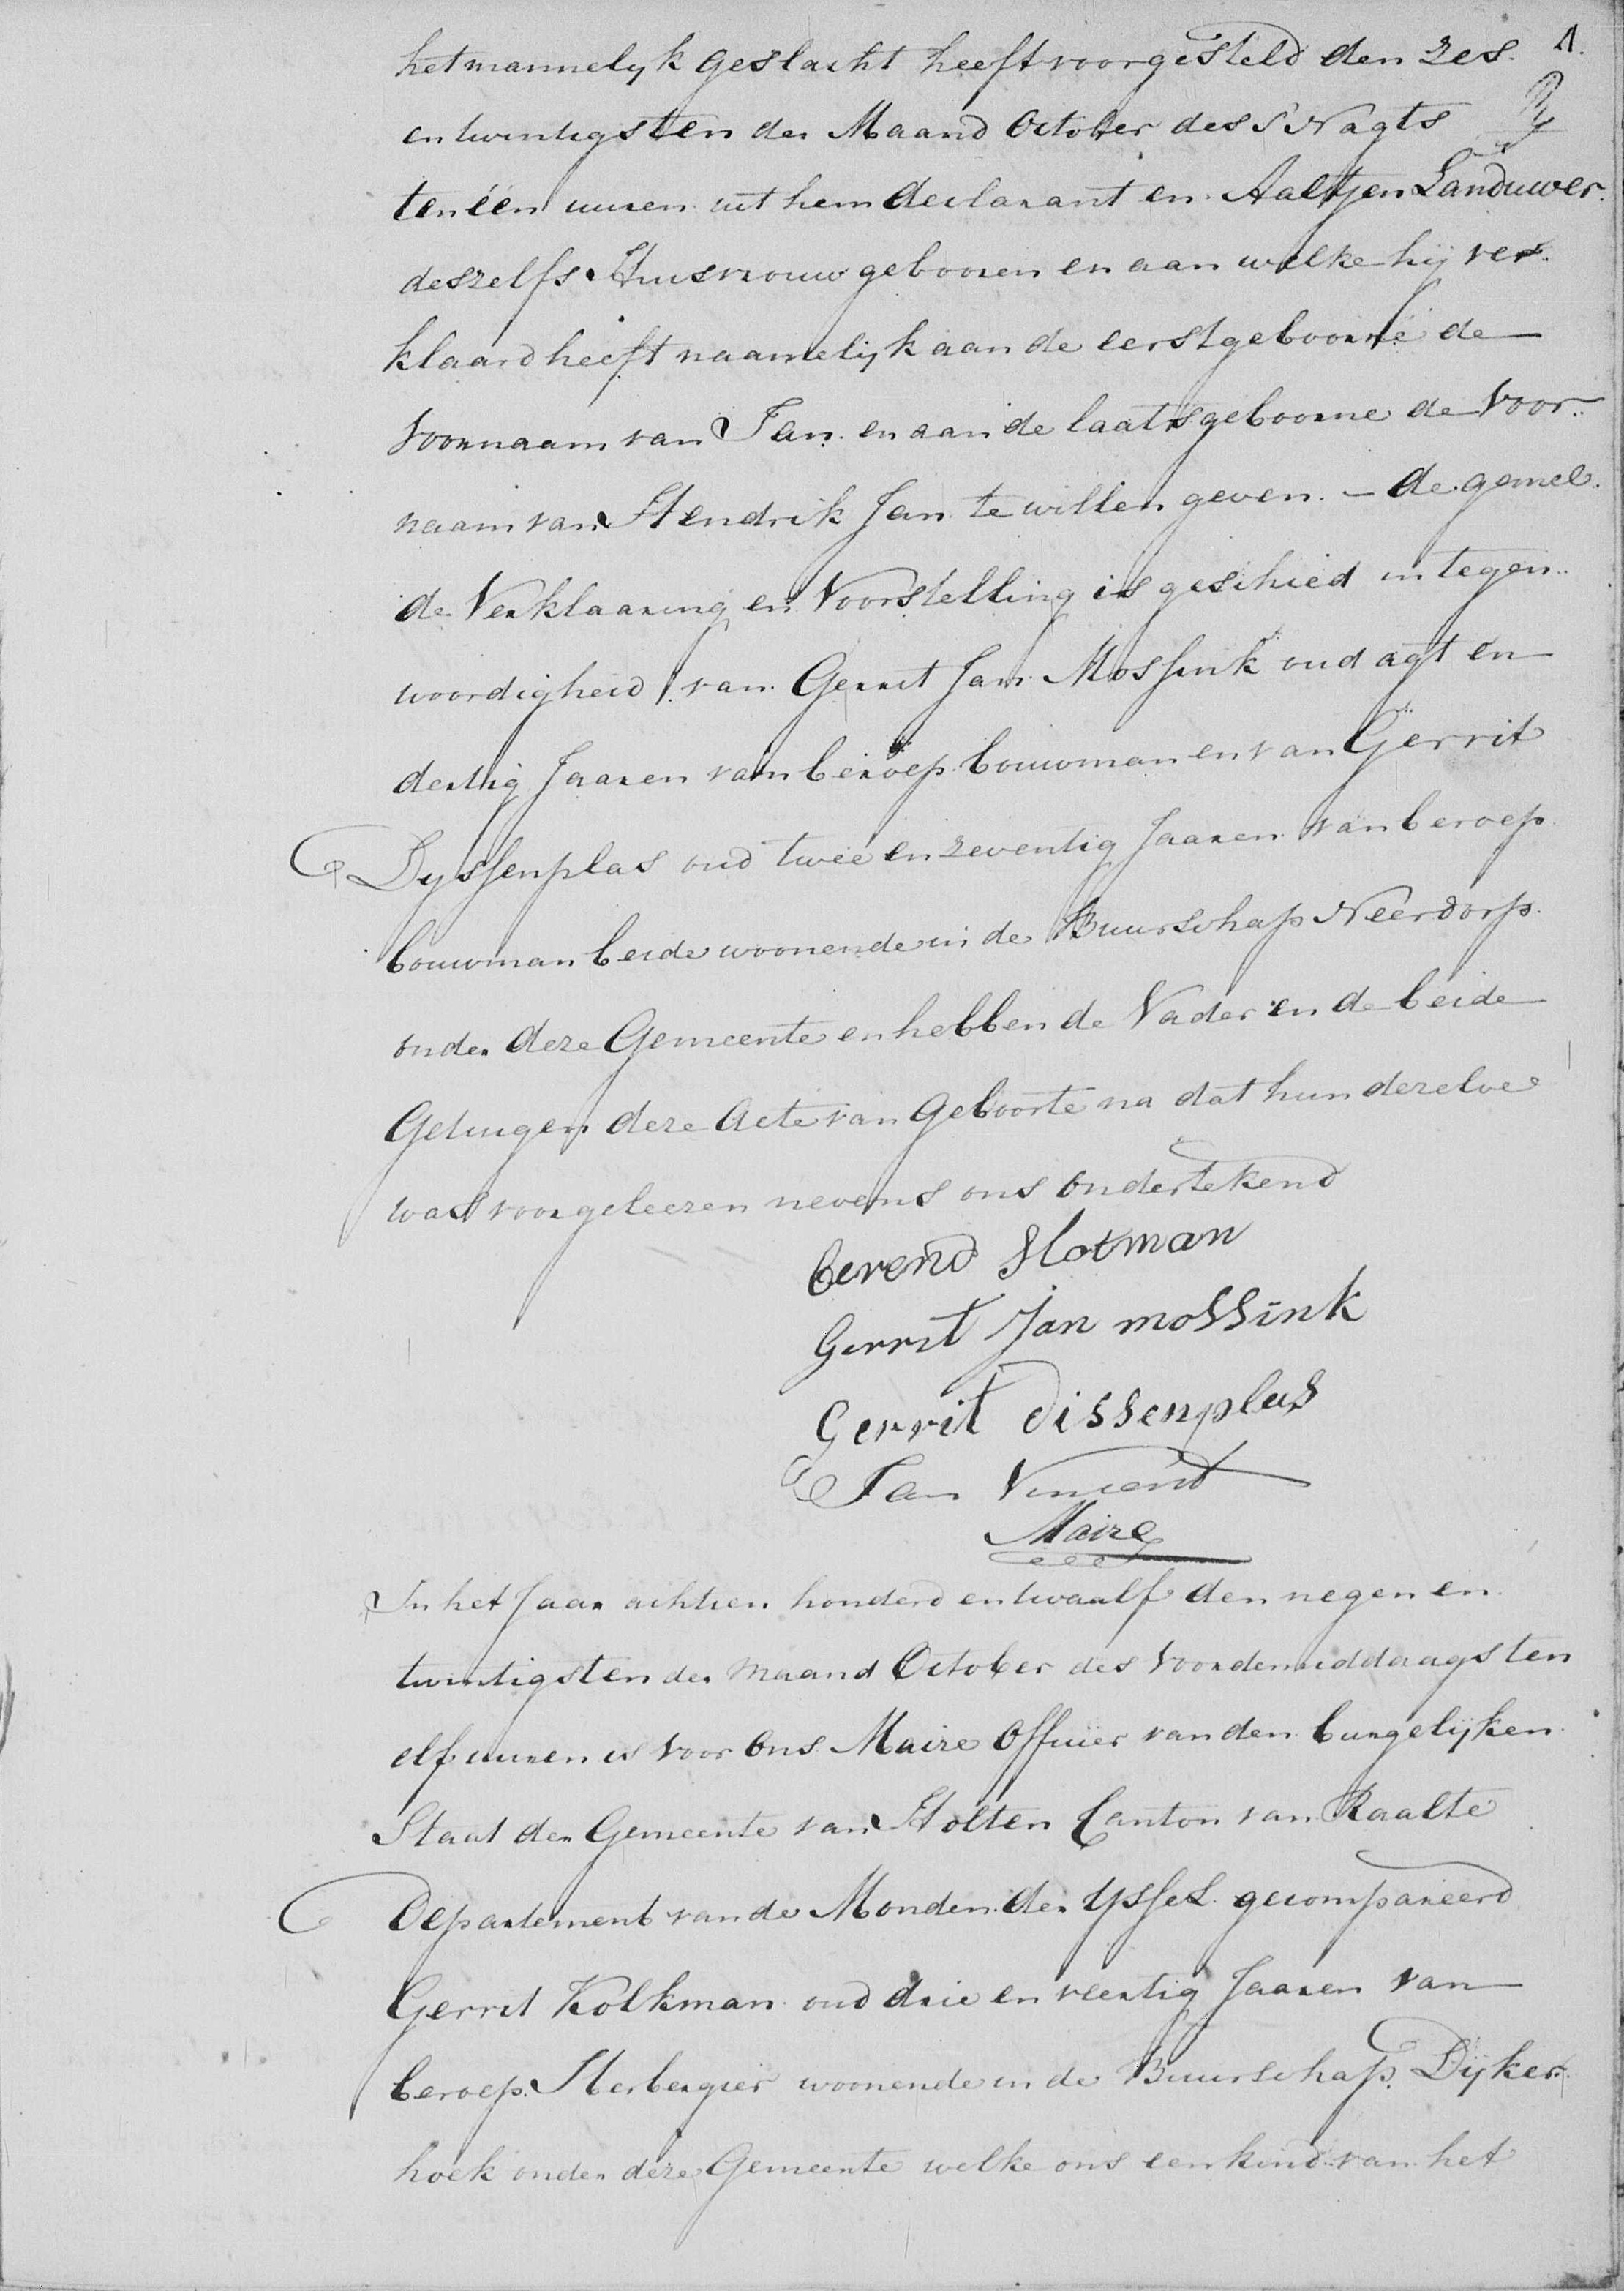 1.
het mannelyk geslacht heeft voorgesteld den zes.
en twintigsten der Maand October des s'Nagts
ten één uuren uit hem declarant en Aaltjen Landuwer.
deszelfs Huisvrouw gebooren en aan welke hij ver.
klaard heeft naamelijk aan de eerstgeboorne de
Voornaam van Jan en aan de laatsgeboorne de Voor.
naam van Hendrik Jan te willen geven. - de gemel.
de Verklaaring en Voorstelling is geschied in tegen.
woordigheid van Gerrit Jan Mossink oud agt en
dertig Jaaren van beroep bouwman en van Gerrit
Dyssenplas oud twee en zeventig Jaaren van beroep
bouwman beide woonende in de Buurschap Neerdorp
onder deze Gemeente en hebben de Vader en de beide
Getuigen deze Acte van Geboorte na dat hun dezelve
was voorgeleezen nevens ons ondertekend
berend Slotman
Gerrit Jan mossink
Gerrit dissenplas
Jan Vincent
Maire
In het Jaar achtien honderd en twaalf den negen en
twintigsten der maand October des Voordemiddaags ten
elf uuren is voor ons Maire Officier van den burgelijken
Staat der Gemeente van Holten Canton van Raalte
Departement van de Monden der Yssel gecompareerd
Gerrit Kolkman oud drie en veertig Jaaren van
beroep Herbergier woonende in de Buurschap Dijker.
hoek onder deze Gemeente welke ons een kind van het